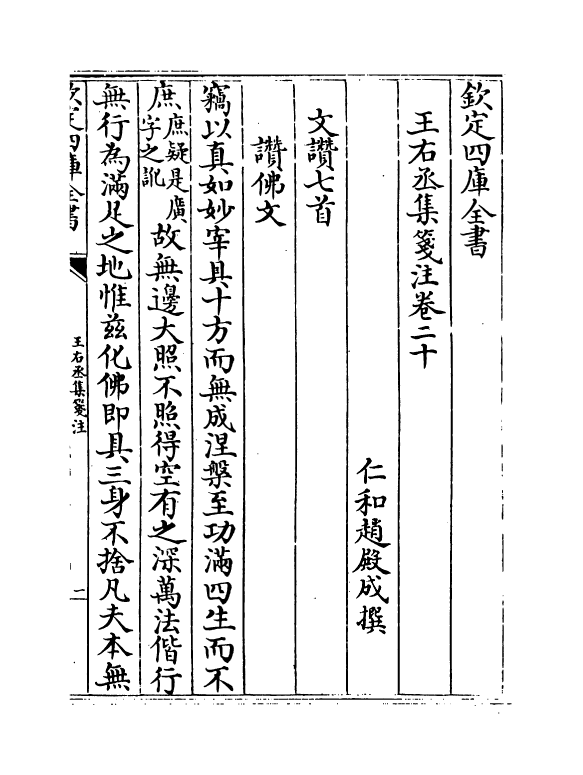 欽定四庫全書
王右丞集箋注卷二十
仁和趙殿成撰
文讚七首
讚佛文
竊以真如妙宰具十方而無成涅槃至功滿四生而不
庶庶疑是廣字之訛故無邊大照不照得空有之深萬法偕行
無行為滿足之地惟茲化佛即具三身不捨凡夫本無
欽定四庫全書
王右丞集箋注
二